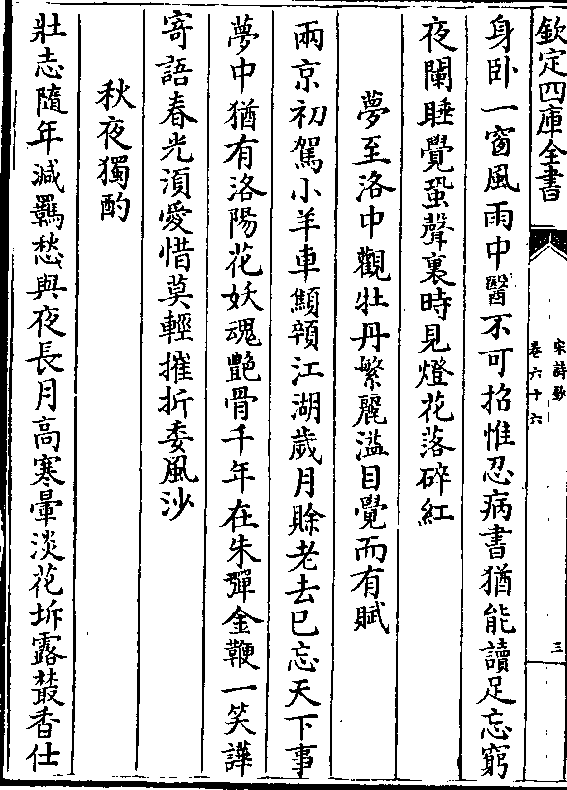 欽定四庫全書
宋詩鈔
卷六十六
三
身卧一窗風雨中醫不可招惟忍病書猶能讀足忘窮
夜闌睡覺蛩聲裏時見燈花落碎紅
夢至洛中觀牡丹繁麗溢目覺而有賦
兩京初駕小羊車顦顇江湖歲月賒老去已忘天下事
夢中猶有洛陽花妖魂艷骨千年在朱彈金鞭一笑譁
寄語春光湏愛惜莫輕摧折委風沙
秋夜獨酌
壯志隨年減羈愁與夜長月高寒暈淡花坼露叢香仕